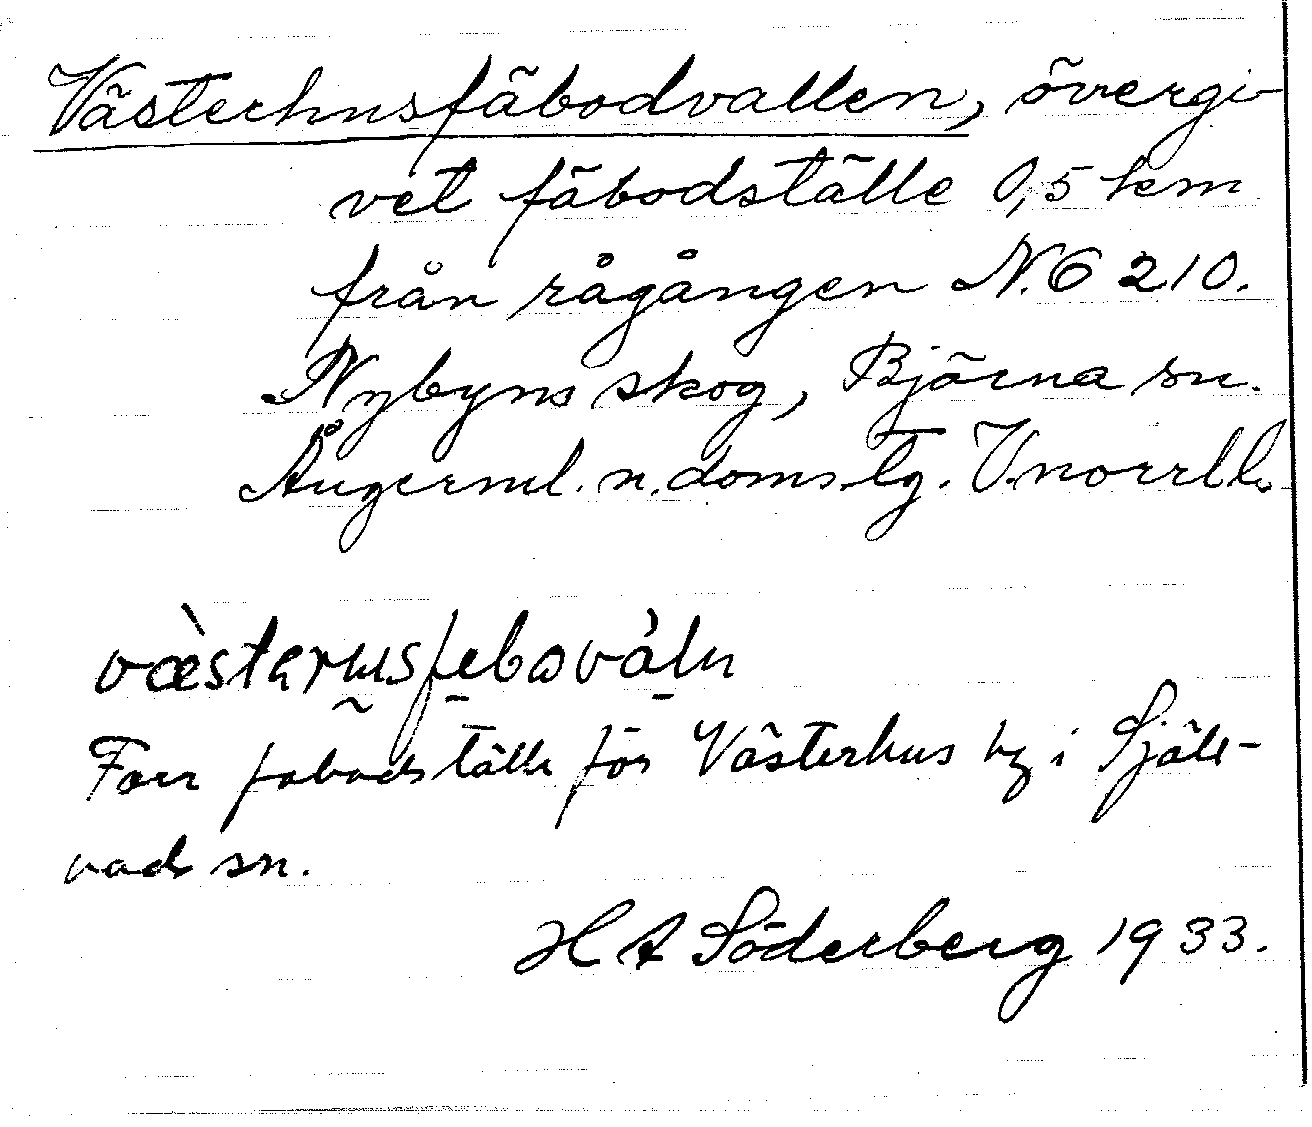 Västerhusfäbodvallen, övergi-
vet fäbodställe 0,5 km
från rågången N. 6 210.
Nybyns skog, Björna sn.
Ångerml. n. doms.lg. V.norrl l.
Förr fabodställe för Västerhus by i Själe-
vad sn.
H A Söderberg 1933.